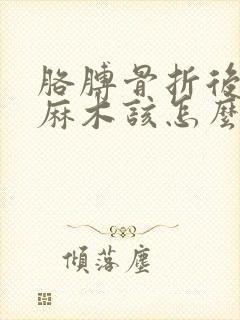 胳膊骨折後
麻木該怎麼
傾落塵